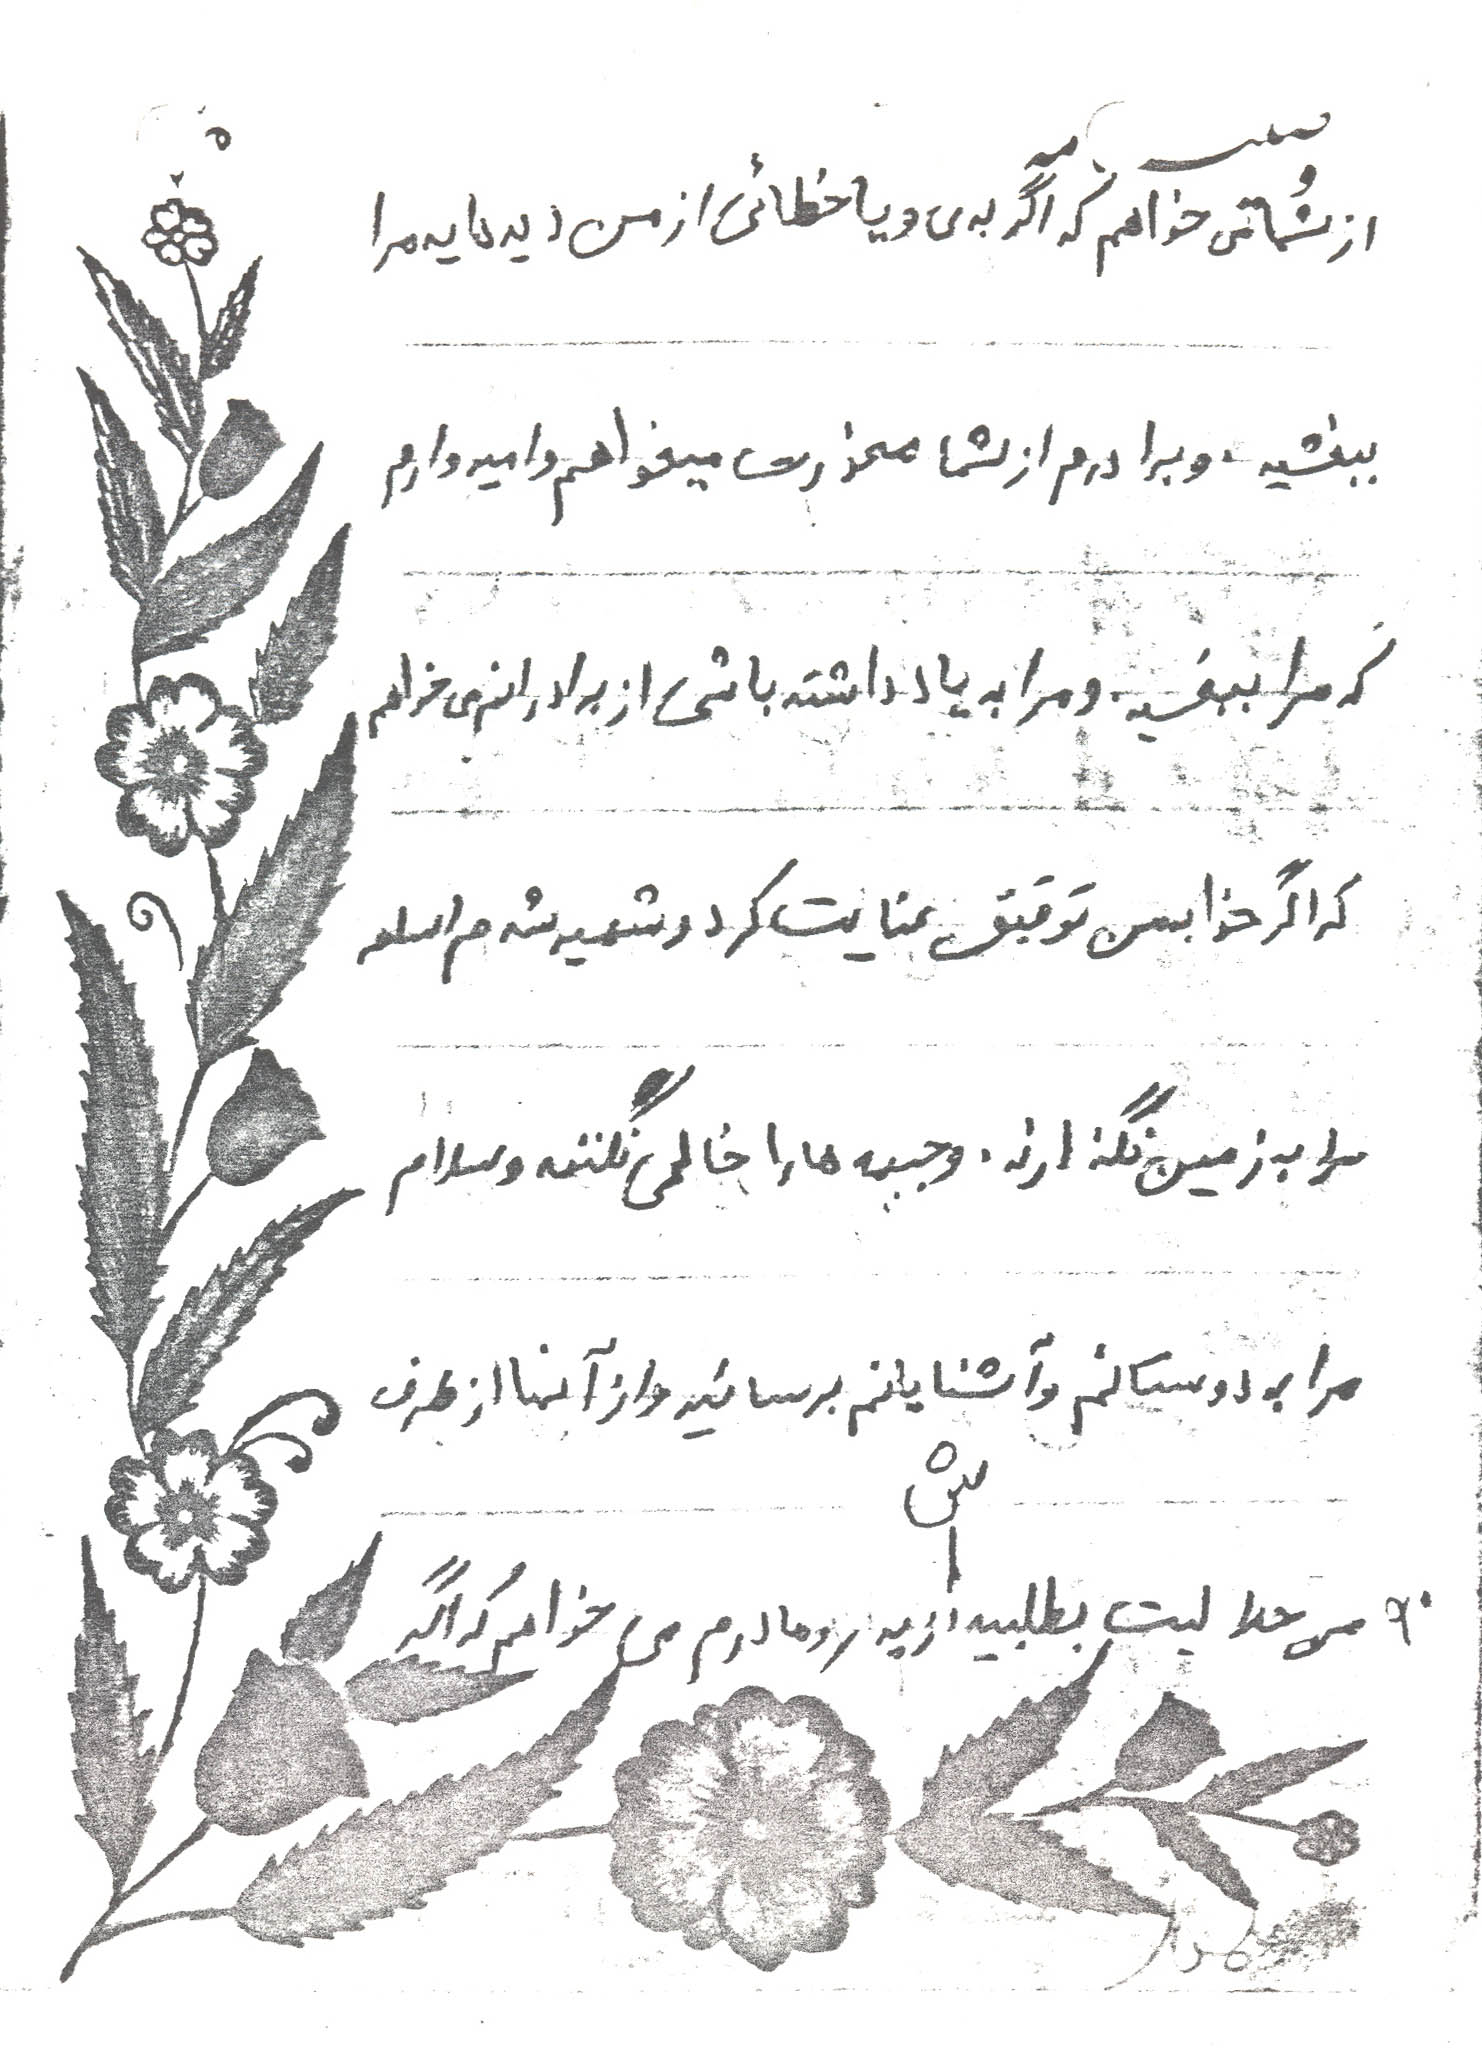 از شما می خواهم که اگر بدی و یا خطائی از من دیده اید مرا
ببخشید . و برادرم از شما معذرت میخواهم و امیدوارم
که مرا ببخشید . و مرا به یاد داشته باشی از برادرانم می خواهم
که اگر خدا بمن توفیق عنایت کرد و شهید شدم اسلحه
مرا به زمین نگذارند . و جبهه ها را خالی نکنند و سلام
مرا به دوستانم و آشنایانم برسانید و از آنها از طرف
من حلالیت بطلبید از پدر و مادرم می خواهم که اگر